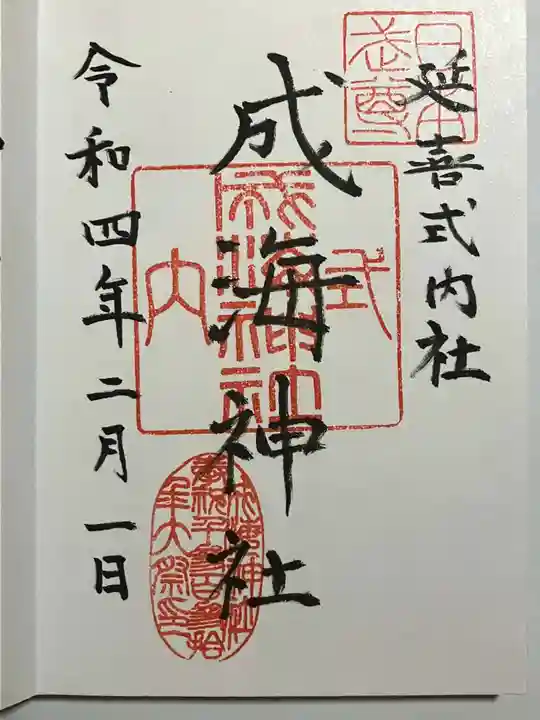 延喜式内社
日本武尊
成海神社
式内
成海神社
令和四年二月一日